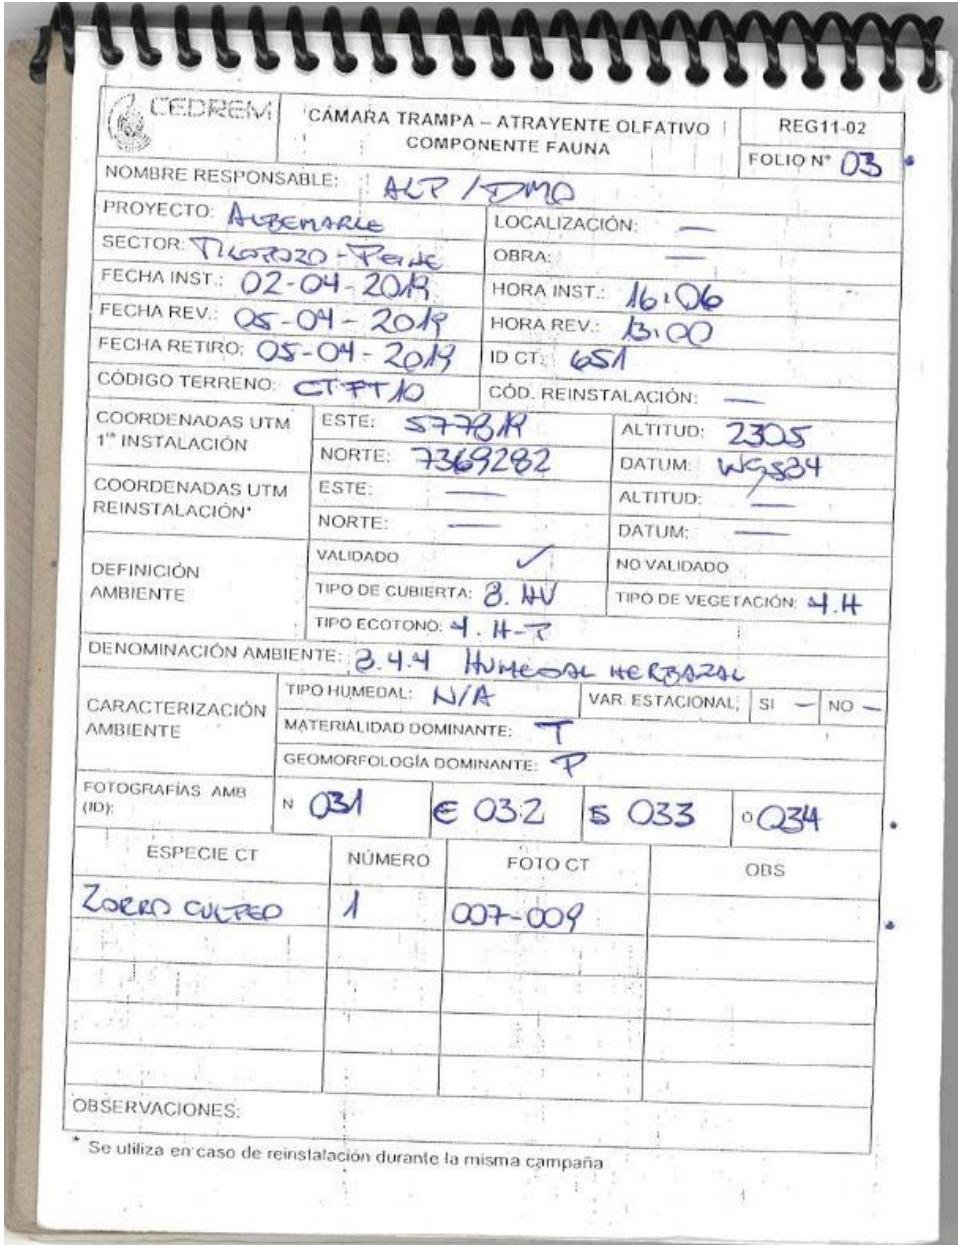 CEDREM
CÁMARA TRAMPA – ATRAYENTE OLFATIVO
COMPONENTE FAUNA
REG11-02
FOLIO N° 03
NOMBRE RESPONSABLE: ALP / DMO
PROYECTO: ALBEMARLE LOCALIZACIÓN: —
SECTOR: TILOPOZO - PEINE OBRA: —
FECHA INST.: 02-04-2019 HORA INST.: 16:06
FECHA REV.: 05-04-2019 HORA REV.: 13:00
FECHA RETIRO: 05-04-2019 ID CT: 651
CÓDIGO TERRENO: CTFT10 CÓD. REINSTALACIÓN: —
COORDENADAS UTM
1ra INSTALACIÓN
ESTE: 577819 ALTITUD: 2305
NORTE: 7369282 DATUM: WGS84
COORDENADAS UTM
REINSTALACIÓN*
ESTE: — ALTITUD: —
NORTE: — DATUM: —
DEFINICIÓN
AMBIENTE
VALIDADO ✓ NO VALIDADO
TIPO DE CUBIERTA: 3. HU TIPO DE VEGETACIÓN: 4. H
TIPO ECOTONO: 4. H-P
DENOMINACIÓN AMBIENTE: 3.4.4 HUMEDAL HERBAZAL
CARACTERIZACIÓN
AMBIENTE
TIPO HUMEDAL: N/A VAR. ESTACIONAL; SI — NO —
MATERIALIDAD DOMINANTE: T
GEOMORFOLOGÍA DOMINANTE: P
FOTOGRAFÍAS AMB
(ID):
N 031 E 032 S 033 O 034
ESPECIE CT NÚMERO FOTO CT OBS
ZORRO CULPEO 1 007-009
OBSERVACIONES:
* Se utiliza en caso de reinstalación durante la misma campaña